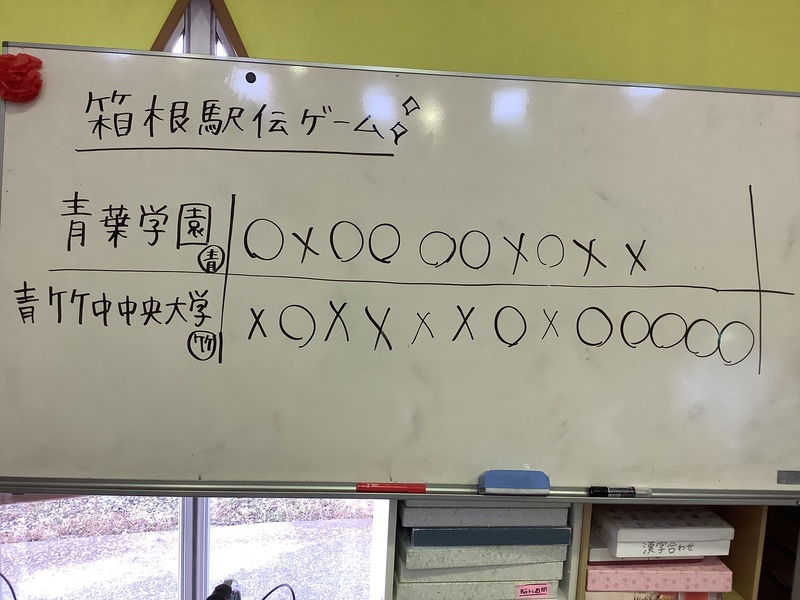 箱根駅伝ゲーム
青葉学園 ○×○○○○×○××
青
青竹中中央大学 ×○×××××○×○○○○○
竹
漢字合わせ